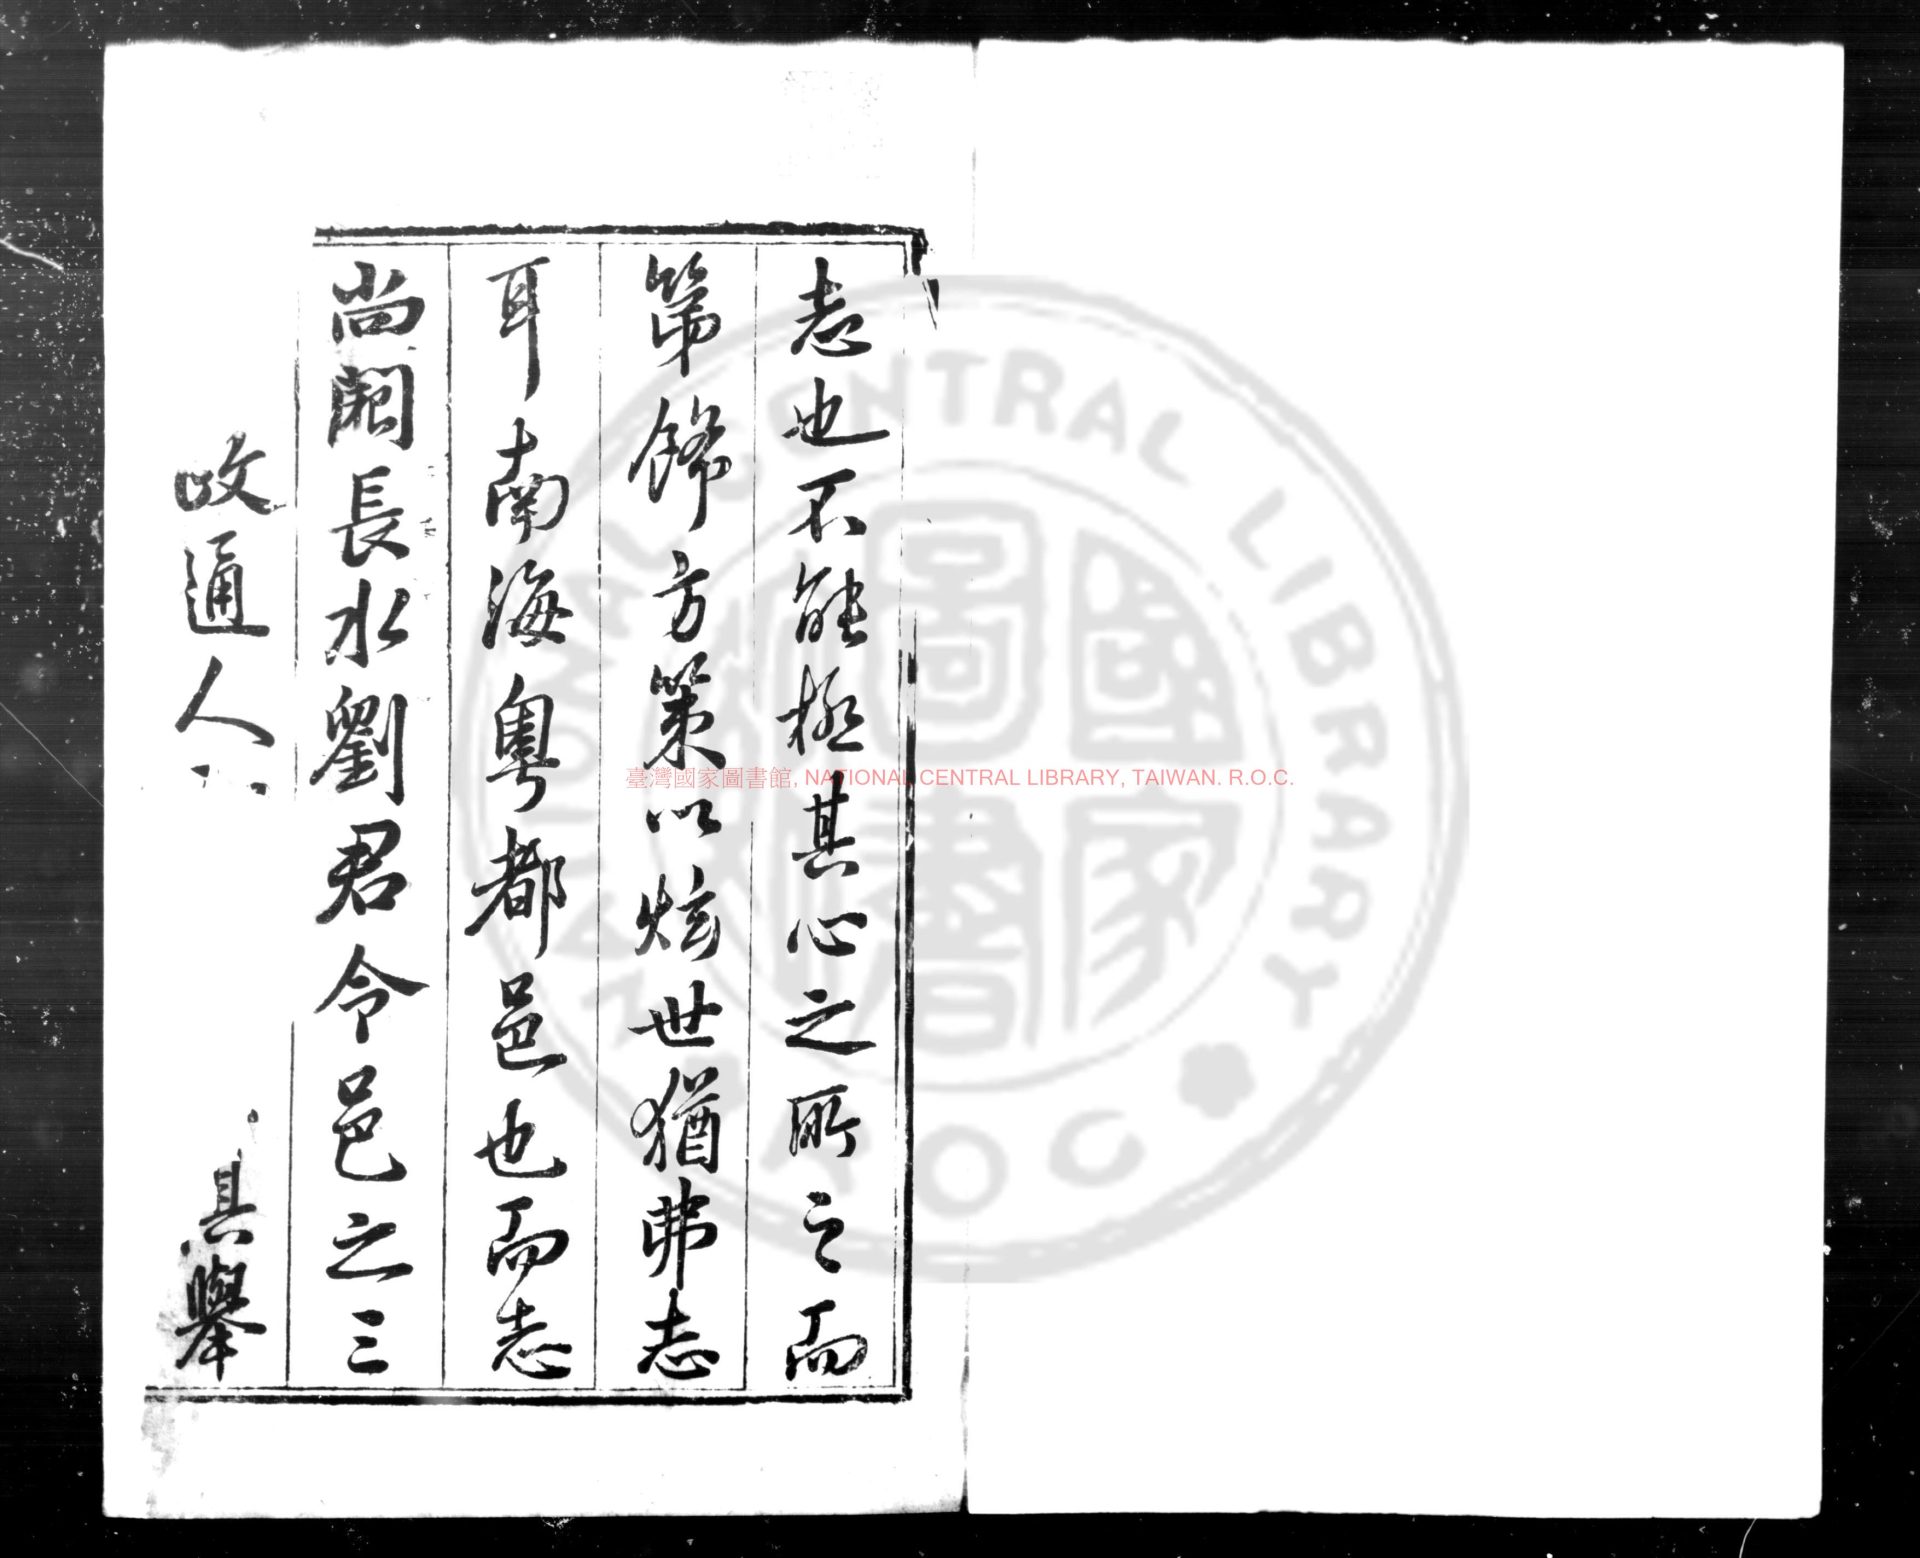 志也不能極其心之所之而
第飾方策以炫世猶弗志
耳南海粵都邑也而志
尚闕長水劉君令邑之三
政通人
具舉
臺灣國家圖書館, NATIONAL CENTRAL LIBRARY, TAIWAN. R.O.C.
NATIONAL CENTRAL LIBRARY
R.O.C.
國家圖書館